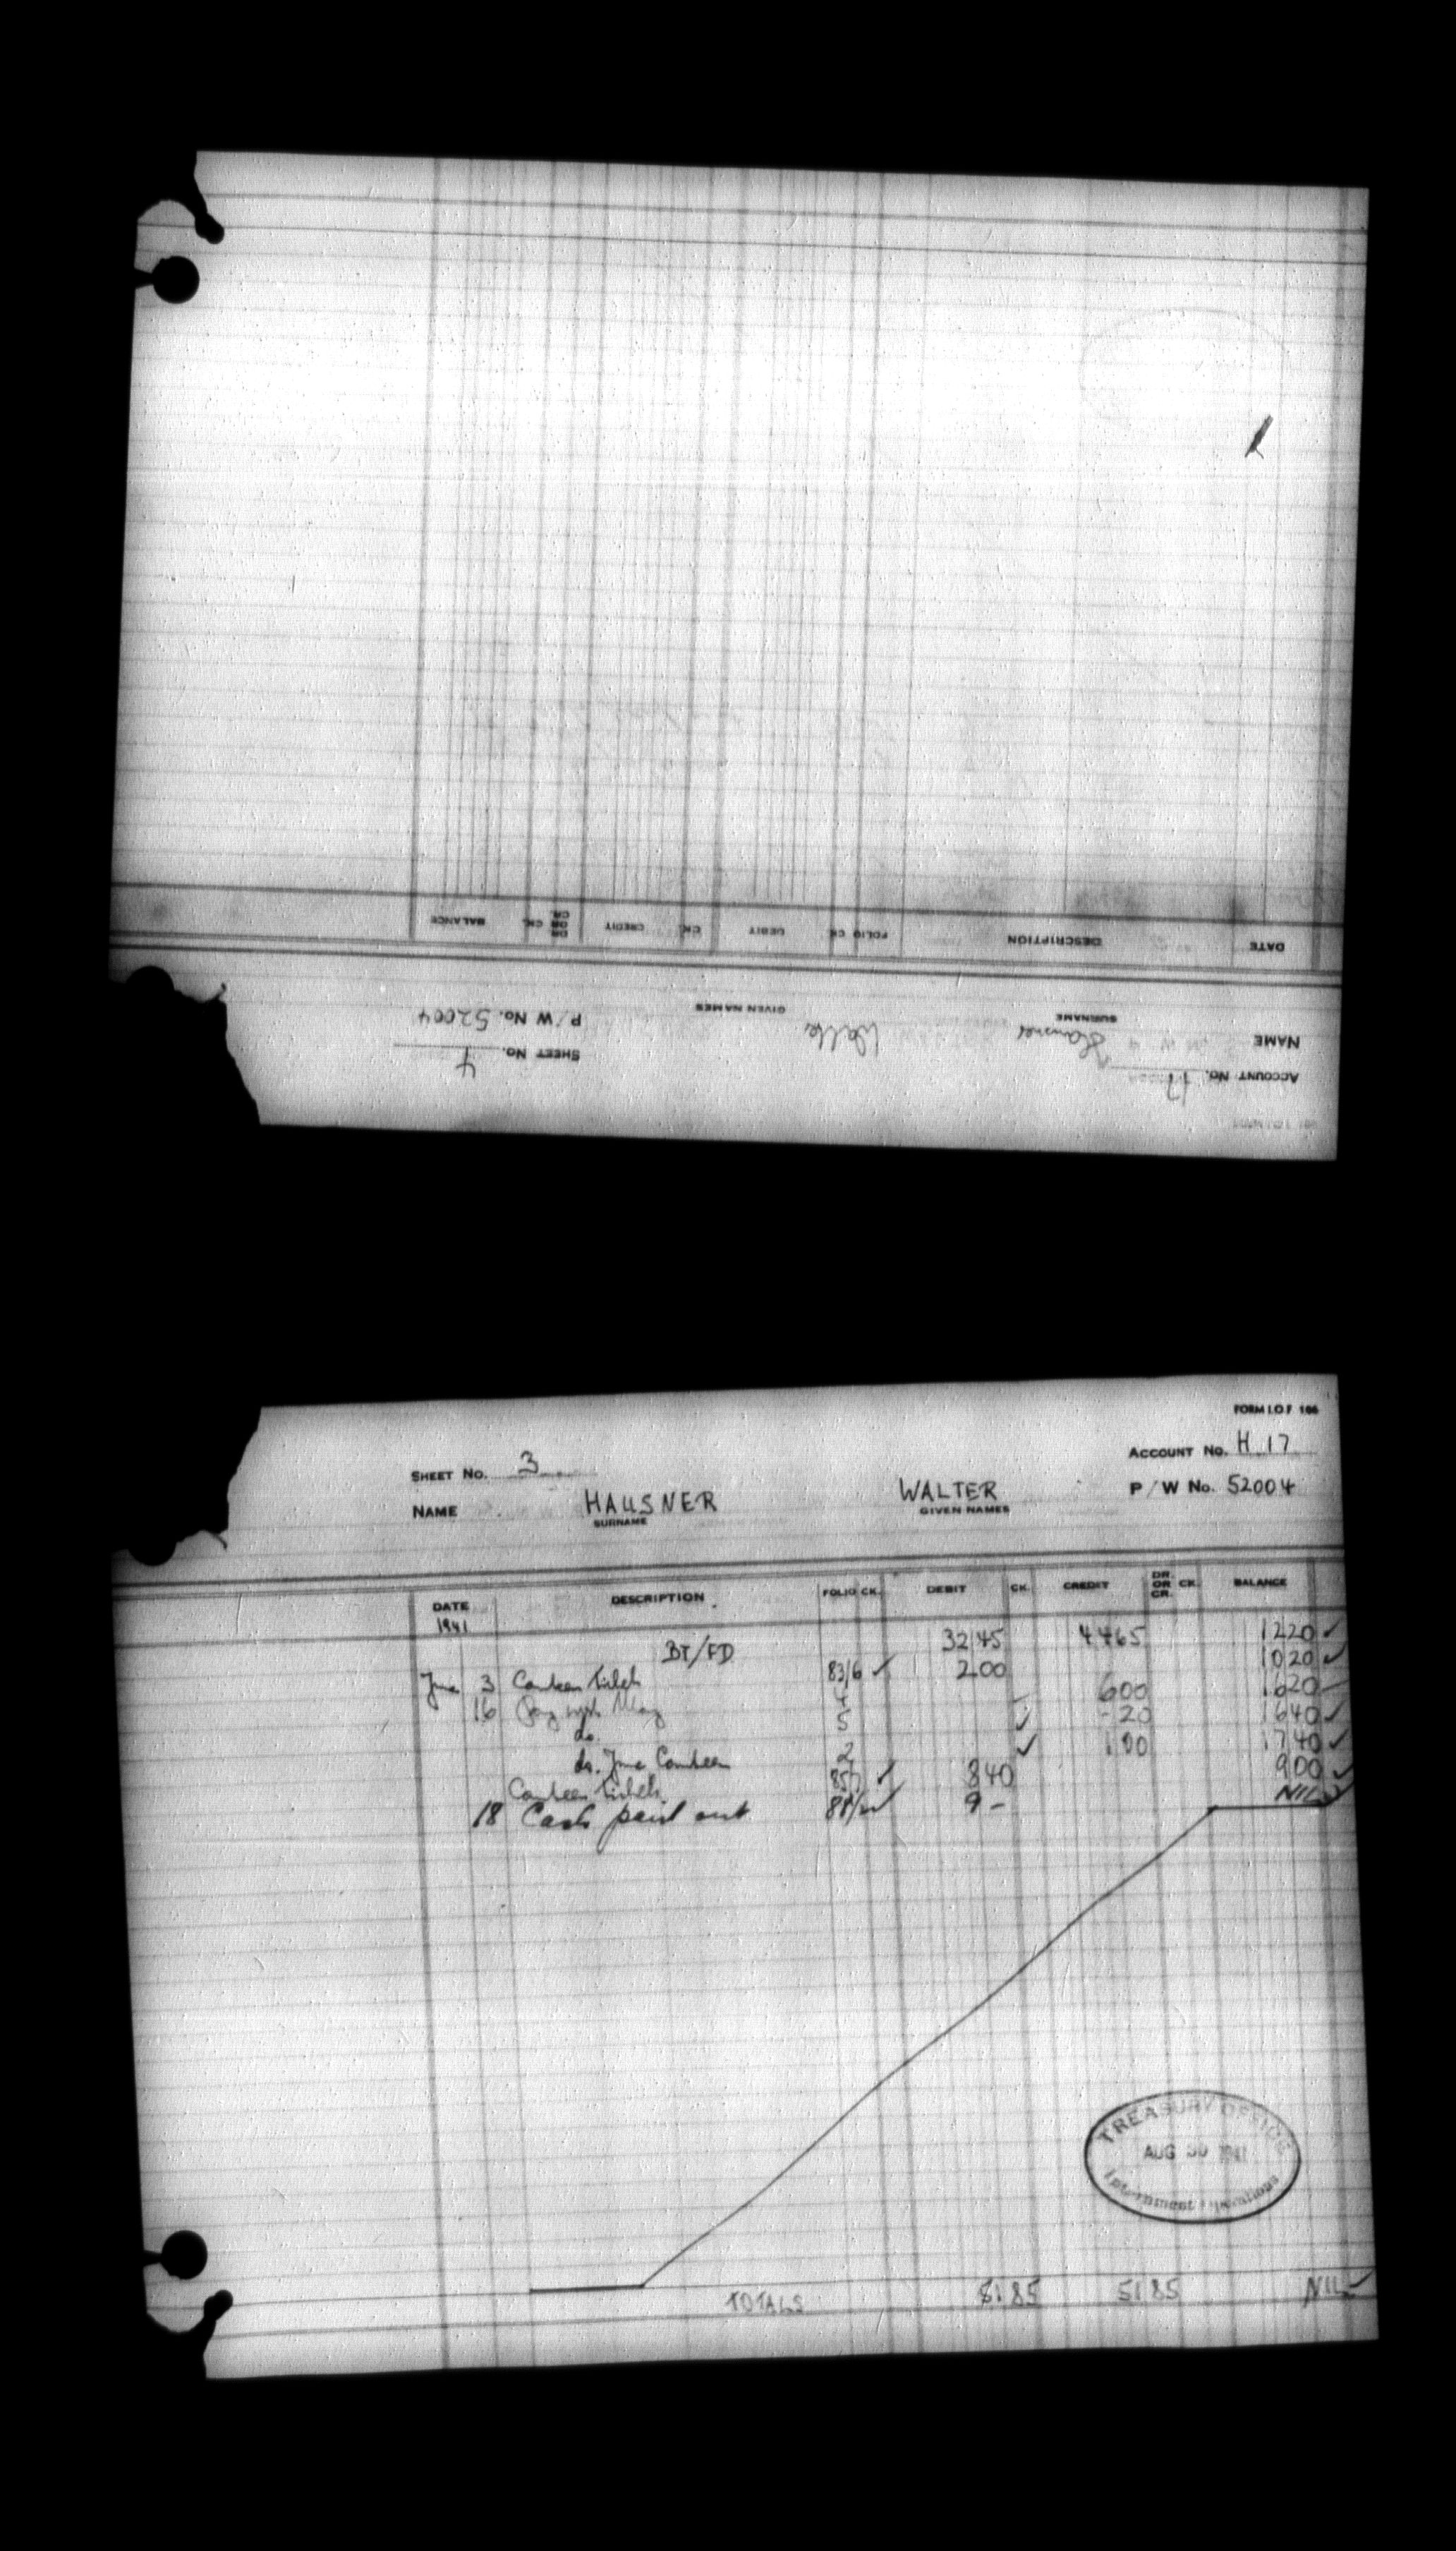 DATE DESCRIPTION FOLIO CK. DEBIT CK. CREDIT DR. OR CR. CK. BALANCE
NAME Hausner Walter P/W No. 52004
SURNAME GIVEN NAMES
ACCOUNT No. 17 SHEET No. 4
FORM I.O.F 106
SHEET No. 3 ACCOUNT No. H 17
NAME HAUSNER WALTER P/W No. 52004
SURNAME GIVEN NAMES
DATE DESCRIPTION FOLIO CK. DEBIT CK. CREDIT DR. OR CR. CK. BALANCE
1941
BT/FD 32 45 44 65 12 20 ✓
June 3 Canteen tickets 83/6 ✓ 2 00 10 20 ✓
16 Pay May 4 6 00 16 20
do. 5 ✓ - 20 16 40 ✓
do. June Canteen 2 ✓ 1 00 17 40 ✓
Canteen tickets 85/7 ✓ 8 40 9 00 ✓
18 Cash paid out ✓ 9 - NIL
TREASURY OFFICE
AUG 30 1941
Internment Operations
TOTALS 51 85 51 85 NIL